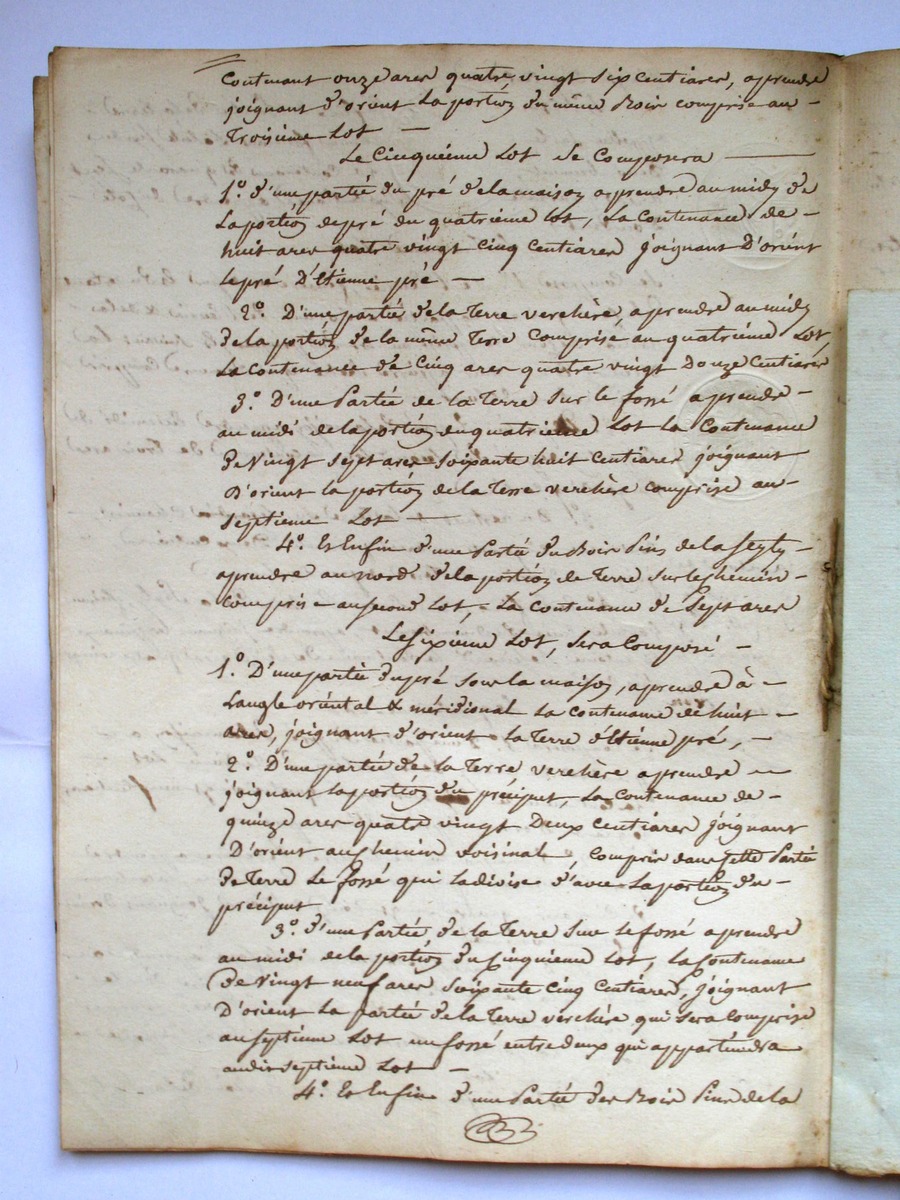 Contenant onze ares quatre vingt six centiares, aprendre
joignant d'orient la portion du même Bois comprise au
Troisième Lot
Le Cinquiéme Lot se Composera
1º. d'une partie du pré de la maison aprendre au midy de
La portion de pré du quatrième lot, La Contenance de
huit ares quatre vingt cinq centiares joignant D'orient
le pré D'Etienne pré
2º. D'une partie de la Terre verchère, aprendre au midy
de la portion de la même Terre Comprise au quatrième Lot,
La Contenance de Cinq ares quatre vingt Douze Centiares
3º. D'une Partie de la Terre Sur le fossé aprendre
au midi de la portion du quatrieme Lot La Contenance
de Vingt Sept ares Soixante huit Centiares joignant
D'orient la portion de la Terre verchère comprise au
Septieme Lot
4º. Et Enfin d'une Partie du Bois Pins de la
aprendre au nord de la portion de Terre Sur le chemin
comprise au second Lot, La Contenance de Sept ares
Le Sixieme Lot, Sera Composé
1º. D'une partie du pré sous la maison, aprendre à
L'angle oriental & méridional La contenance de huit
ares, joignant d'orient la Terre d'Etienne pré,
2º. D'une partie de la Terre verchère aprendre
joignant la portion du preciput, La Contenance de
quinze ares quatre vingt Deux centiares joignant
D'orient au chemin voisinal, compris dans cette Partie
de Terre Le fossé qui la divise d'avec la portion du
préciput
3º. d'une Partie de la Terre Sur le fossé aprendre
au midi de la portion du Cinquieme Lot, La Contenance
De Vingt neuf ares Soixante cinq Centiares, joignant
D'orient La partie de la Terre verchère qui sera Comprise
au Septieme Lot un fossé entre deux qui appartiendra
audit Septieme Lot
4º. Et Enfin d'une Partie des Bois Pins de la